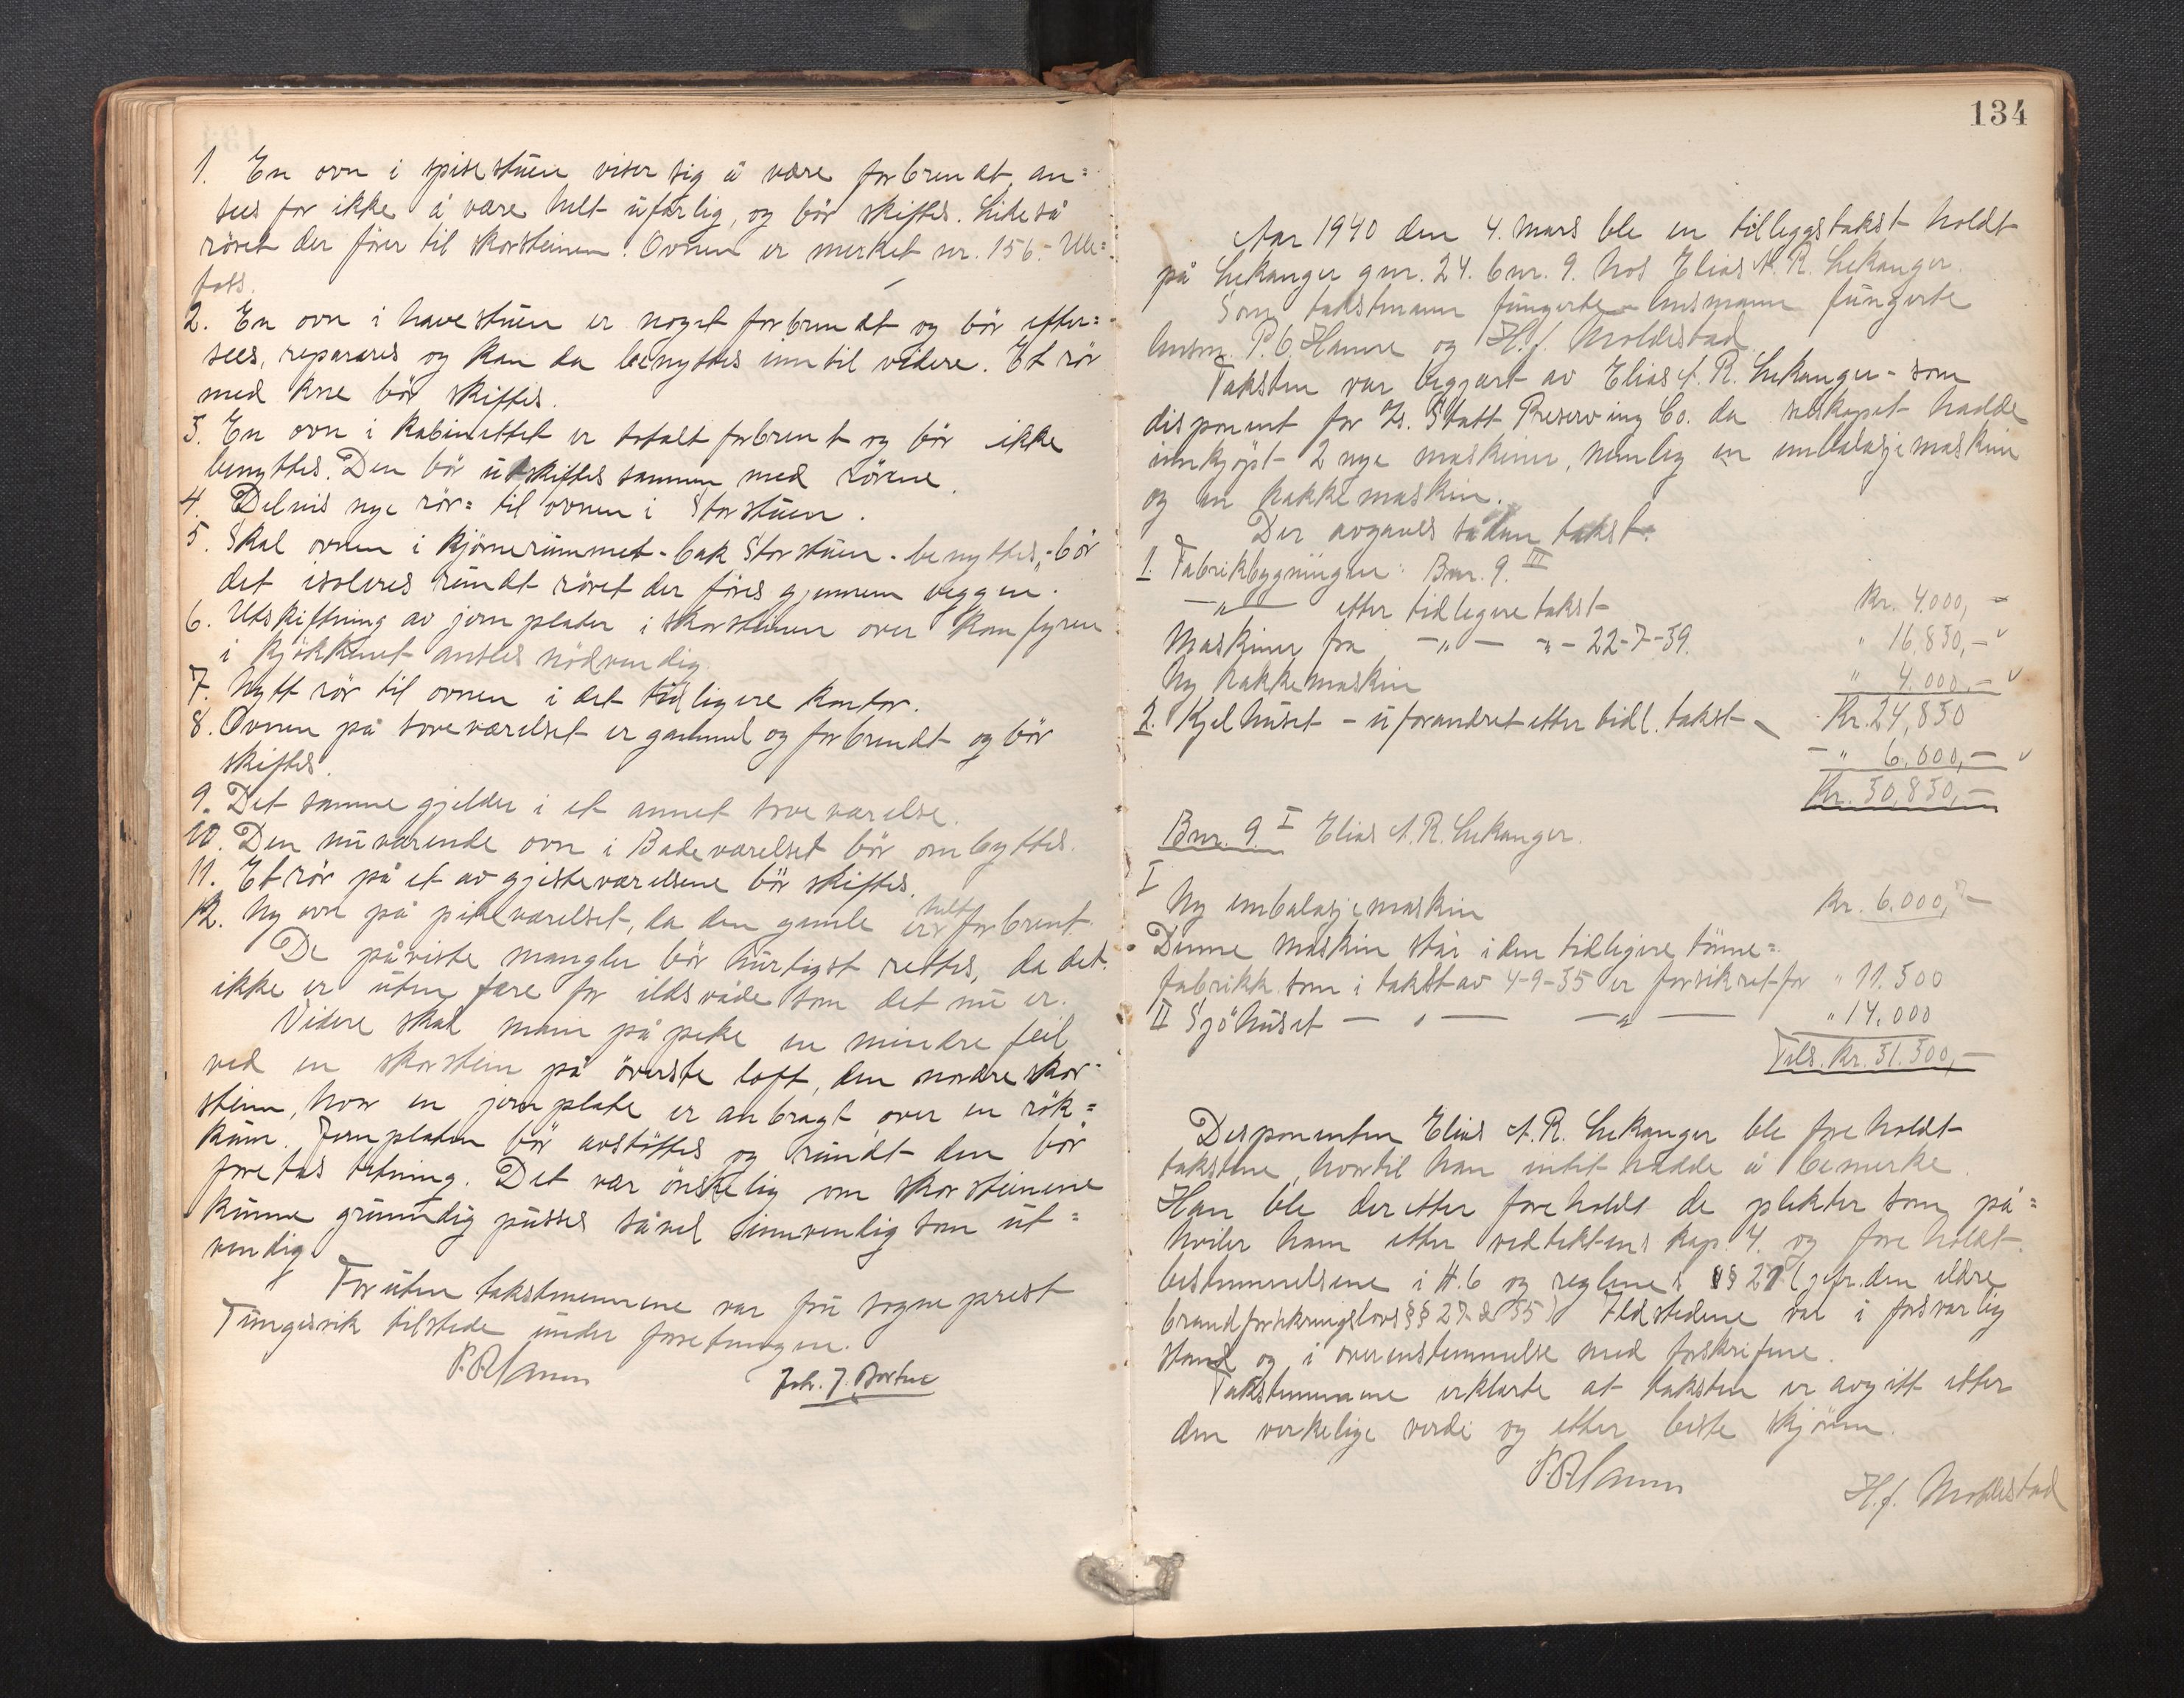 1. En ovn i spisestuen viser sig å være forbrendt, an=
sees for ikke å være helt ufarlig, og bör skiftes. Likeså
röret der förer til skorsteinen. Ovnen er merket nr. 156. Ule=
foss.
2. En ovn i havestuen er noget forbrendt og bör efter=
sees, repareres og kan da benyttes inntil videre. Et rör
med kne bör skiftes.
3. En ovn i kabinettet er totalt forbrent og bör ikke
benyttes. Den bör utskiftes sammen med rörene.
4. Delvis nye rör= til ovnen i Storstuen.
5. Skal ovnen i hjörnerummet - bak Storstuen - benyttes, - bör
det isoleres rundt röret der föres gjennem veggen.
6. Utskiftning av jernplater i skorsteinen over komfyren
i kjökkenet ansees nödvendig.
7. Nytt rör til ovnen i det tidligere kontor.
8. Ovnen på soveværelset er gammel og forbrendt og bör
skiftes.
9. Det samme gjelder i et annet soveværelse.
10. Den nuværende ovn i Badeværelset bör ombyttes.
11. Et rör på et av gjesteværelsene bör skiftes.
12. Ny ovn på pikeværelset, da den gamle er helt forbrent.
De påviste mangler bör hurtigst rettes, da det
ikke er uten fare for ildsvåde som det nu er.
Videre skal man påpeke en mindre feil
ved en skorstein på överste loft, den nordre skor=
stein, hvor en jernplate er anbragt over en rök=
kum. Jernplaten bör avstöttes og rundt den bör
foretas tetning. Det var önskelig om skorsteinene
kunne grundig pusses såvel innvendig som ut=
vendig.
Foruten takstmennene var fru sogneprest
Tungesvik tilstede under forretningen.
P.B. Hamre Joh. J. Bortne
134
Aar 1940 den 4. mars ble en tilleggstakst holdt
på Leikanger gnr. 24. bnr. 9. hos Elias A. R. Leikanger.
Som takstmenn fungerte lensmann fungerte
lensm. P. B. Hamre og H. J. Moldestad.
Taksten var begjært av Elias A. R. Leikanger - som
disponent for A/s. Statt Preserving Co. da selskapet hadde
innkjöpt 2 nye maskiner, nemlig en emballasjemaskin
og en hakkemaskin.
Der avgaves sådan takst:
1. Fabrikbygningen: Bnr. 9. III
—"— etter tidlegere takst Kr. 4.000, -
Maskiner fra —"— "- 22-7-39. " 16.850, -
Ny hakkemaskin " 4.000. -
2. Kjelhuset - uforandret etter tidl. takst Kr. 24,850
" 6.000, -
Kr. 30,850, -
Bnr. 9. I Elias A. R. Leikanger.
I
Ny embalasjemaskin Kr. 6.000, -
Denne maskin står i den tidligere tönne=
fabrikk som i takst av 4-9-35 er forsikret for " 11.500
II Sjöhuset — " — — " — " 14.000
Tils. Kr. 31.500, -
Disponenten Elias A. R. Leikanger ble foreholdt
takstene, hvortil han intet hadde å bemerke.
Han ble deretter foreholdt de plikter som på=
hviler ham etter vedtektens kap. 4. og foreholdt
bestemmelsene i H. 6 og reglenes §§ 27 (jefr. den eldre
brandforsikringslovs §§ 27 & 35. Ildstedene var i forsvarlig
stand og i overensstemmelse med forskriftene.
Takstmennene erklærte at taksten er avgitt etter
den verkelige verdi og etter beste skjönn.
P.B. Hamre H. J. Moldestad